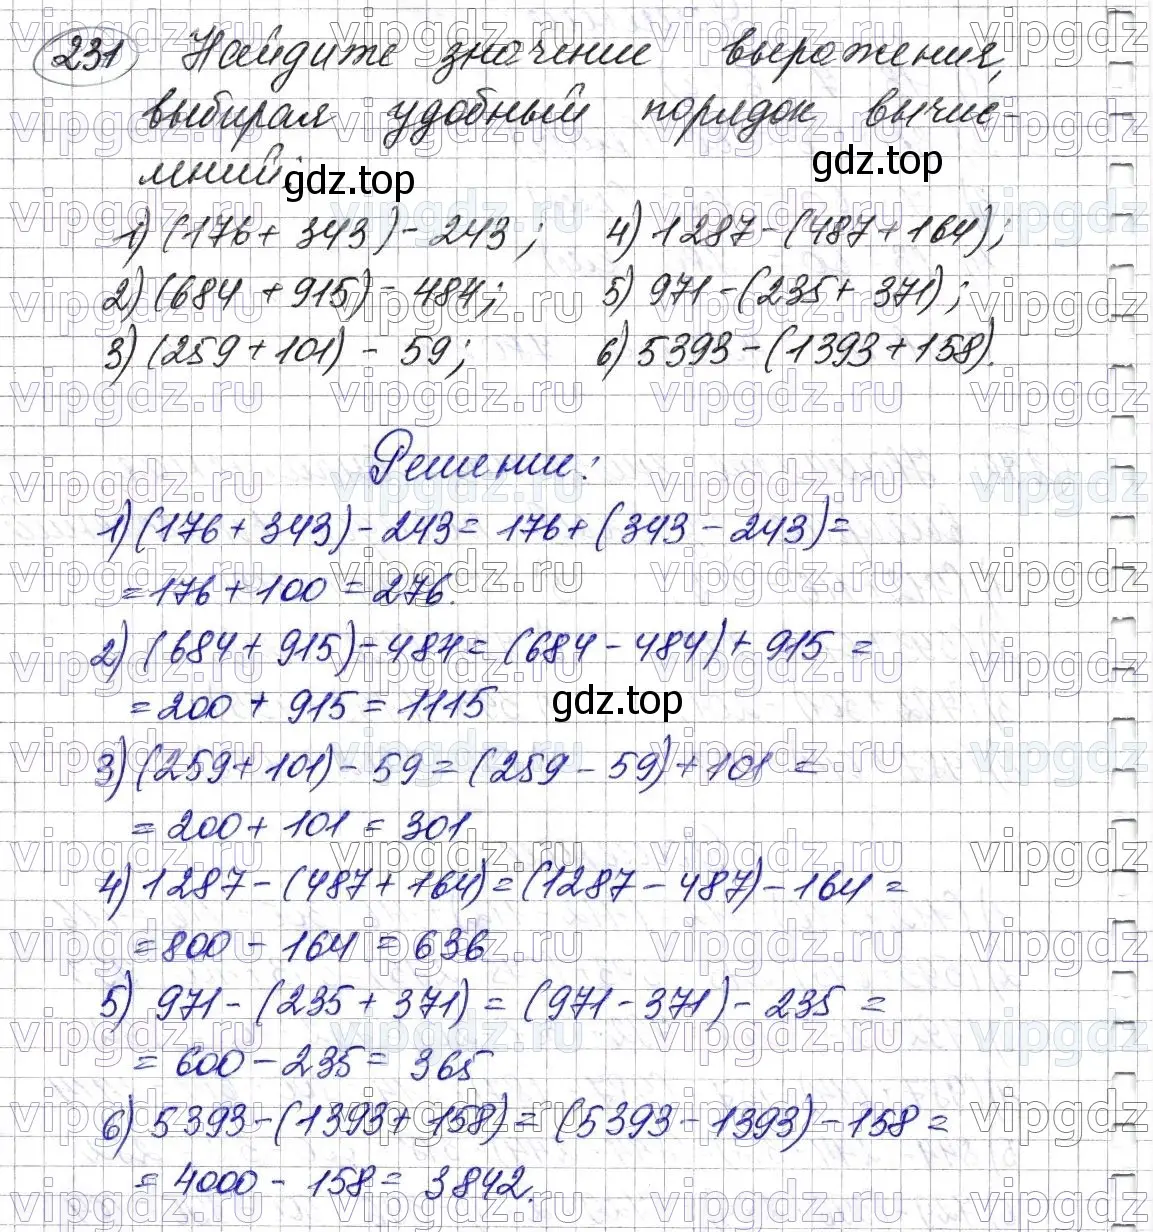 231 Найдите значение выражения,
выбирая удобный порядок вычис-
лений:
gdz.top
gdz.top
1) (176 + 343) - 243; 4) 1287 - (487 + 164);
2) (684 + 915) - 484; 5) 971 - (235 + 371);
3) (259 + 101) - 59; 6) 5393 - (1393 + 158).
Решение:
1) (176 + 343) - 243 = 176 + (343 - 243) =
= 176 + 100 = 276.
2) (684 + 915) - 484 = (684 - 484) + 915 =
= 200 + 915 = 1115
gdz.top
3) (259 + 101) - 59 = (259 - 59) + 101 =
= 200 + 101 = 301
4) 1287 - (487 + 164) = (1287 - 487) - 164 =
= 800 - 164 = 636
5) 971 - (235 + 371) = (971 - 371) - 235 =
= 600 - 235 = 365
6) 5393 - (1393 + 158) = (5393 - 1393) - 158 =
= 4000 - 158 = 3842.
vipgdz.ru